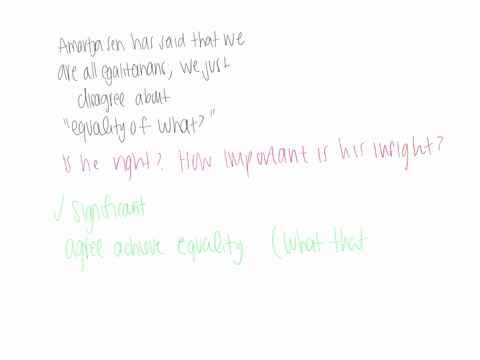 Amartya sen has said that we
are all egalitarians, we just
disagree about
"equality of what?"
Is he right? How important is his insight?
✓ significant
agree achieve equality (what that